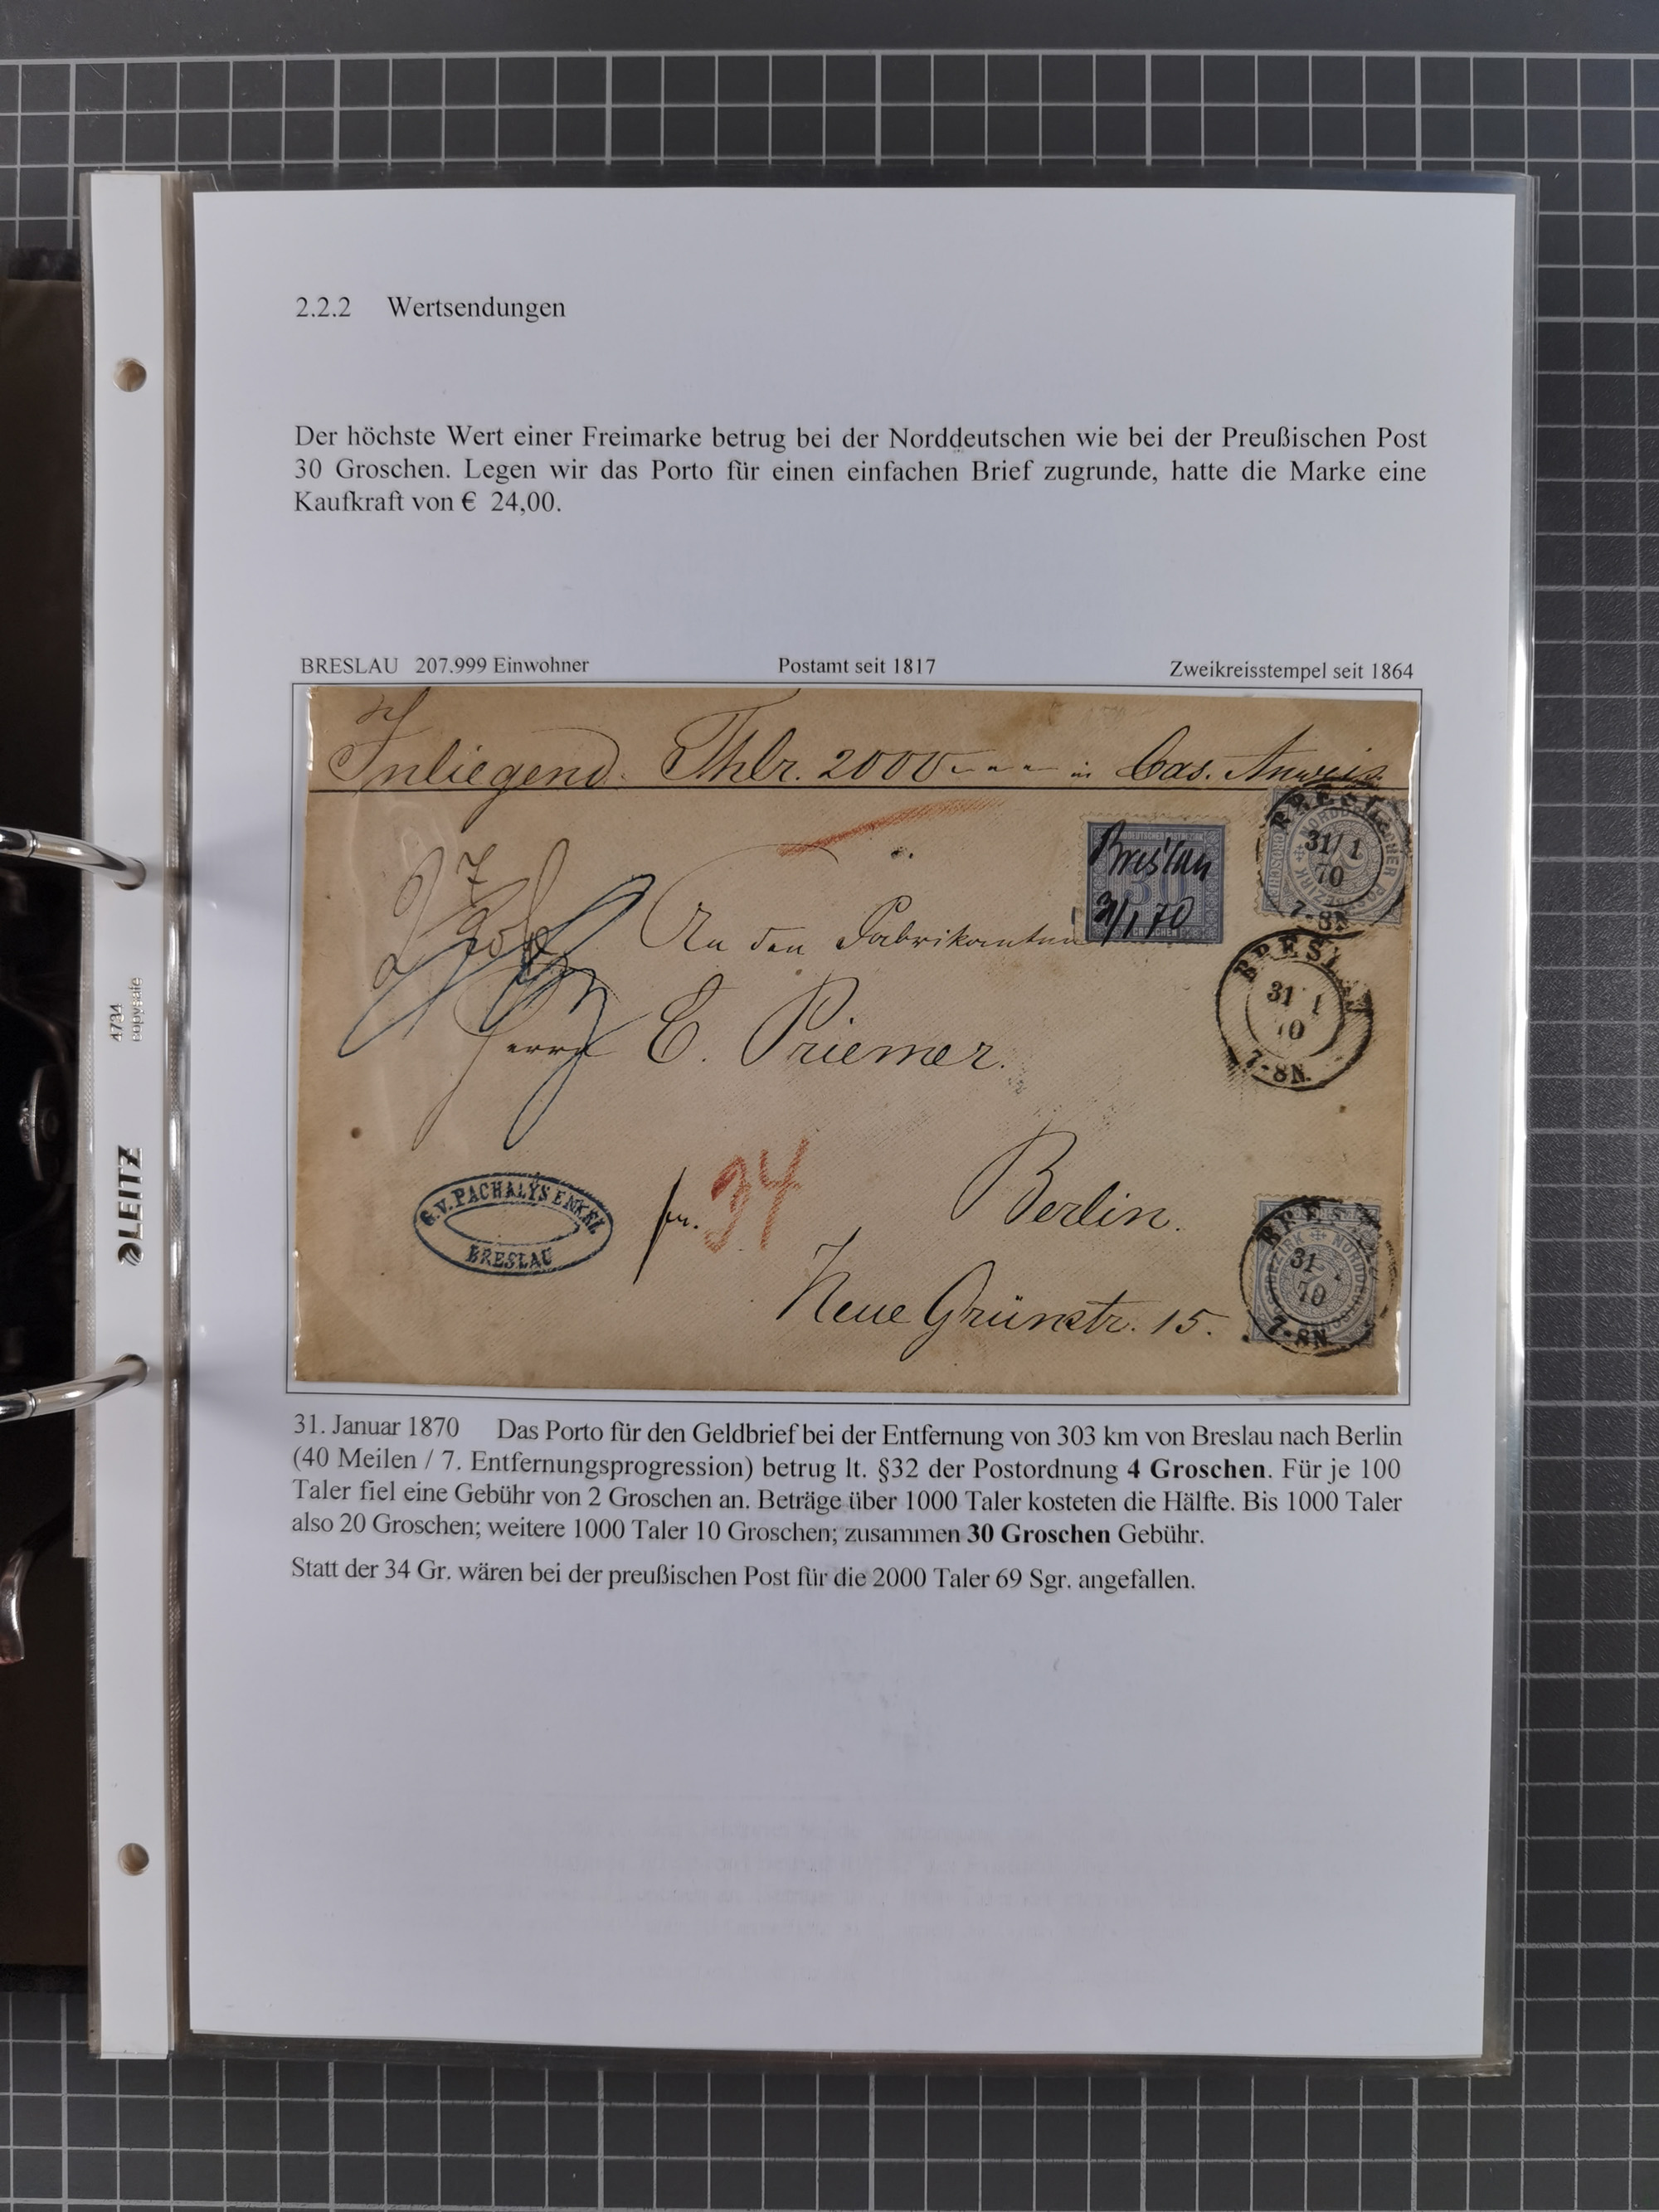 2.2.2 Wertsendungen
Der höchste Wert einer Freimarke betrug bei der Norddeutschen wie bei der Preußischen Post
30 Groschen. Legen wir das Porto für einen einfachen Brief zugrunde, hatte die Marke eine
Kaufkraft von € 24,00.
BRESLAU 207.999 Einwohner Postamt seit 1817 Zweikreisstempel seit 1864
Inliegend. Thlr. 2000 - - - in Cas. Anweis.
BRESLAU
31/1
70
7-8N
NORDDEUTSCHER POSTBEZIRK
30
GROSCHEN
Breslau
31/1 70
An den Fabrikanten
BRESLAU
31 1
70
7-8N.
Herrn E. Priemer.
G.V. PACHALYS ENKEL
BRESLAU
fr. 34
Berlin.
Neue Grünstr. 15.
BRESLAU
31
70
7-8N.
31. Januar 1870 Das Porto für den Geldbrief bei der Entfernung von 303 km von Breslau nach Berlin
(40 Meilen / 7. Entfernungsprogression) betrug lt. §32 der Postordnung 4 Groschen. Für je 100
Taler fiel eine Gebühr von 2 Groschen an. Beträge über 1000 Taler kosteten die Hälfte. Bis 1000 Taler
also 20 Groschen; weitere 1000 Taler 10 Groschen; zusammen 30 Groschen Gebühr.
Statt der 34 Gr. wären bei der preußischen Post für die 2000 Taler 69 Sgr. angefallen.
4734
copysafe
LEITZ